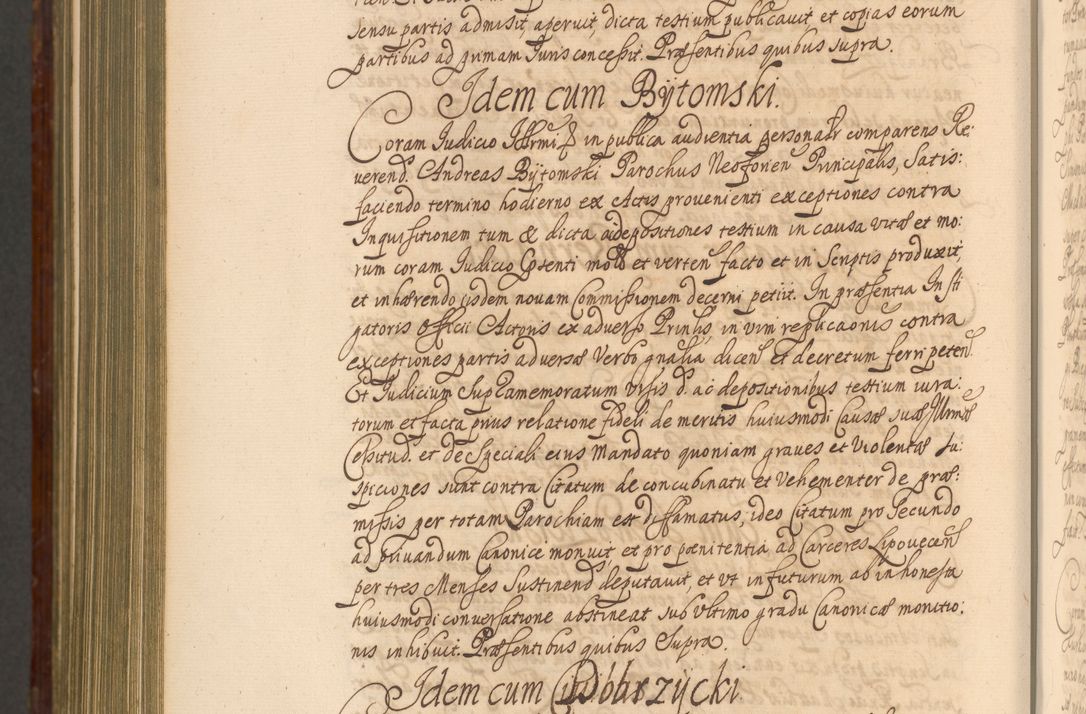 sensu partis admisit, aperuit, dicta testium publicauit et copias eorum
partibus ad primam Iuris concessit. Præsentibus quibus supra.
Idem cum Bÿtomski.
Coram Iudicio in publica audientia personalr comparens Re:
verend. Andreas Bÿtomski Parochus Neoforien Principalis, Satis:
faciendo termino hodierno ex Actis provenienti exceptiones contra
Inquisitionem tum & dicta ac depositiones testium in causa vitæ et mo:
rum coram Iudicio et verten facto et in Scriptis produxit,
et inhærendo ijsdem novam Commissionem decerni petiit. In præsentia Insti
gatoris Officii Actoris ex adverso Prinlis, in vim replicaonis contra
exceptiones partis adversæ Verbo gnalia dicen et decretum ferri peten.
Et Iudicium Supramemoratum visis d. ac depositionibus testium iura:
torum et facta prius relatione fideli de meritis huiusmodi Causæ suæ Illrmæ
Celsitud. et de Speciali eius Mandato quoniam graves et Violentæ su:
spiciones sunt contra Citatum de concubinatu et Vehementer de præ:
missis per totam Parochiam est diffamatus, ideo Citatum pro Secundo
ad privandum Canonice monuit, et pro pænitentia ad Carceres Lipovecen
per tres Menses Sustinend deputavit, et vt in futurum ab inhonesta
huiusmodi conversatione abstineat sub vltimo gradu Canonicæ monitio:
nis inhibuit. Præsentibus quibus Supra.
Idem cum Dobrzÿcki.